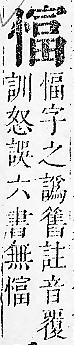 愊
愊字之譌舊註音覆
訓怒誤六書無愊